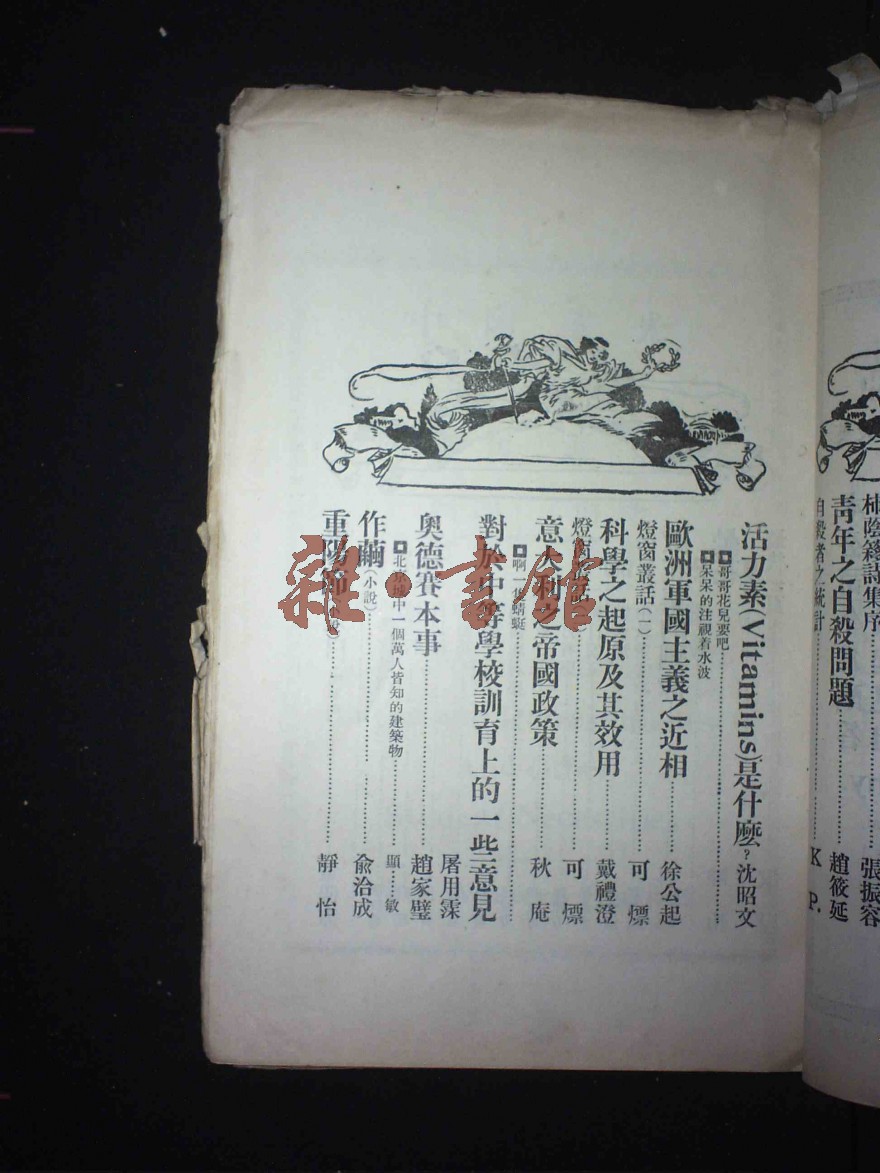 林蔭
詩集序
張振容
靑年之自殺問題
趙筱延
自殺者之統計
K P.
活力素(Vitamins)是什麼? 沈昭文
哥哥花兒要吧
呆呆的注視着水波
歐洲軍國主義之近相 徐公起
燈窗叢話(一) 可熛
科學之起原及其效用 戴禮澄
燈窗 可熛
意大利之帝國政策 秋庵
啊一隻蜻蜓
對於中等學校訓育上的一些意見
屠用霂
奧德賽本事 趙家璧
北京城中一個萬人皆知的建築物 顯敏
作繭(小說) 俞洽成
重陽節 靜怡
雜·書館